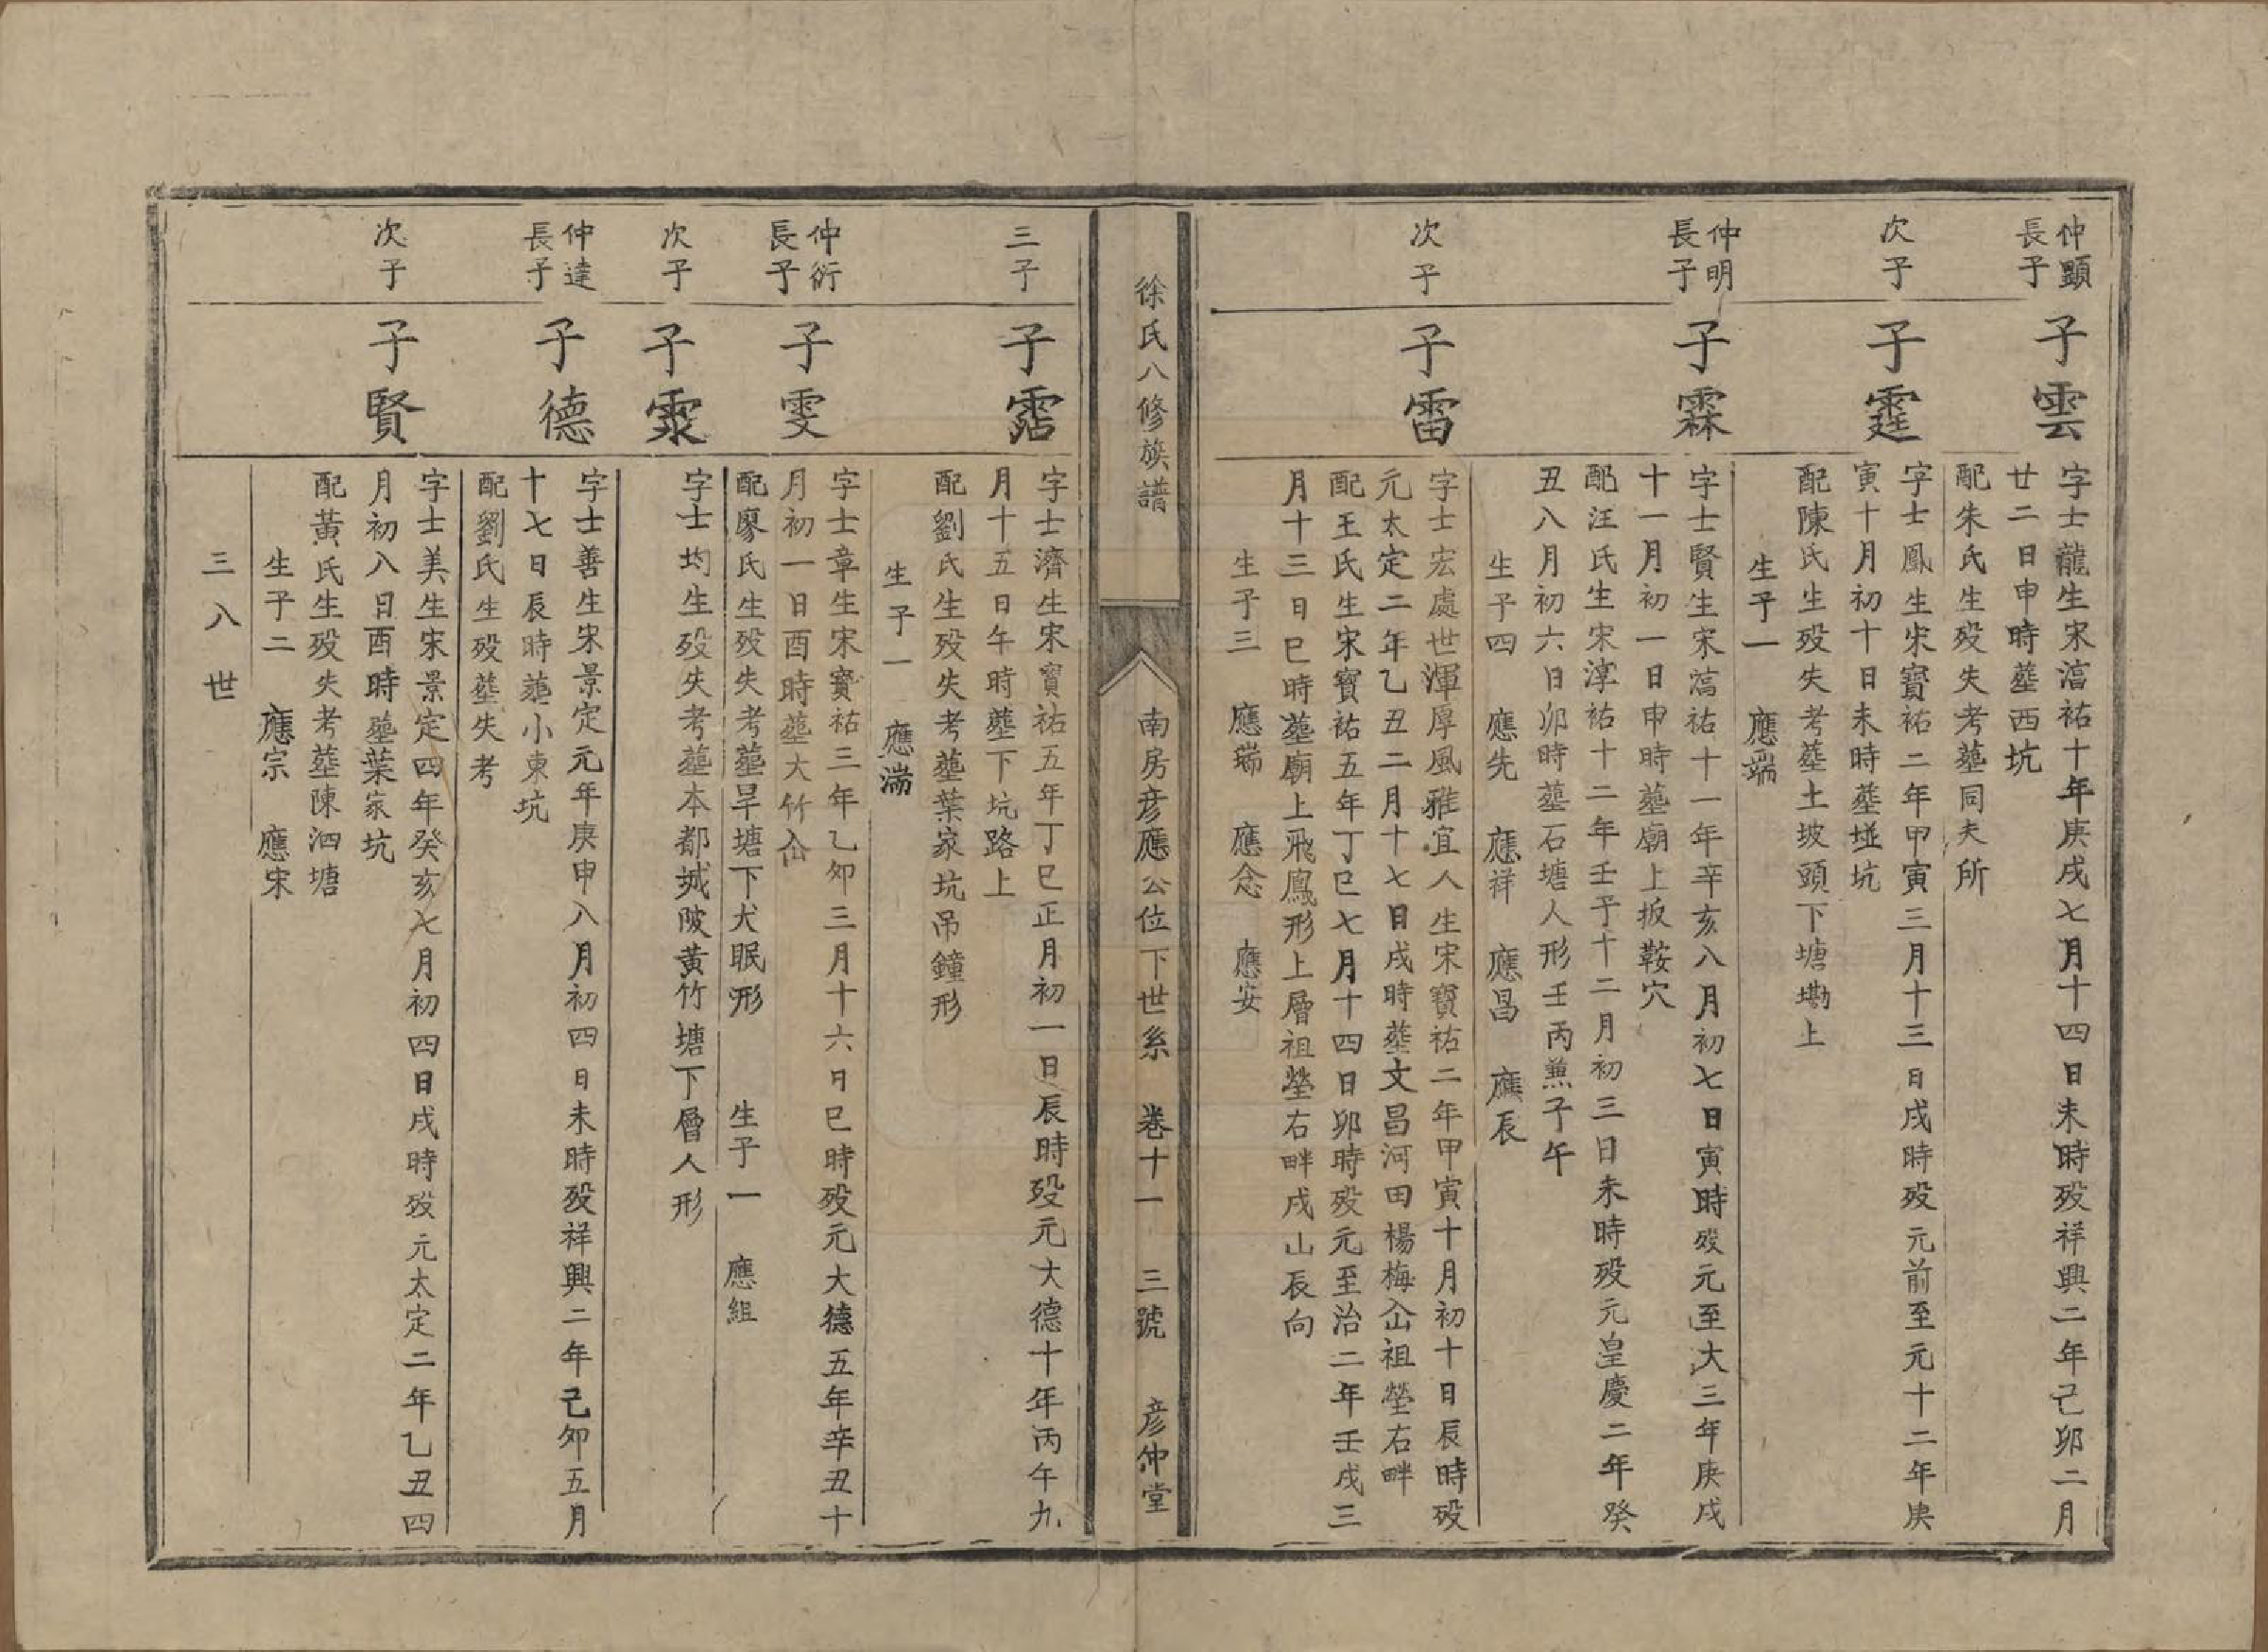 仲顯長子
子雲
字士龍生宋湻祐十年庚戌七月十四日未時殁祥興二年己卯二月
廿二日申時塟西坑
配朱氏生殁失考塟同夫所
次子
子霆
字士鳳生宋寶祐二年甲寅三月十三日戌時殁元前至元十二年庚
寅十月初十日未時塟𡋾坑
配陳氏生殁失考塟土坡頭下塘墈上
生子一 應端
仲明長子
子霖
字士賢生宋湻祐十一年辛亥八月初七日寅時殁元至大三年庚戌
十一月初一日申時塟廟上扳鞍穴
配汪氏生宋淳祐十二年壬子十二月初三日未時殁元皇慶二年癸
丑八月初六日卯時塟石塘人形壬丙兼子午
生子四 應先 應祥 應昌 應辰
次子
子雷
字士宏處世渾厚風雅宜人生宋寶祐二年甲寅十月初十日辰時殁
元太定二年乙丑二月十七日戌時塟文昌河田楊梅仚祖塋右畔
配王氏生宋寶祐五年丁巳七月十四日卯時殁元至治二年壬戌三
月十三日巳時塟廟上飛鳳形上層祖塋右畔戌山辰向
生子三 應瑞 應念 應安
徐氏八修族譜 南房彦應公位下世系 卷十一 三號 彦仲堂
三子
子霑
字士濟生宋寶祐五年丁巳正月初一日辰時殁元大德十年丙午九
月十五日午時塟下坑路上
配劉氏生殁失考塟葉家坑吊鐘形
生子一 應湍
仲衍長子
子雯
字士章生宋寶祐三年乙卯三月十六日巳時殁元大德五年辛丑十
月初一日酉時塟大竹仚
配廖氏生殁失考塟旱塘下犬眠形 生子一 應組
次子
子霥
字士均生殁失考塟本都城陂黃竹塘下層人形
仲達長子
子德
字士善生宋景定元年庚申八月初四日未時殁祥興二年己卯五月
十七日辰時塟小東坑
配劉氏生殁塟失考
次子
子賢
字士美生宋景定四年癸亥七月初四日戌時殁元太定二年乙丑四
月初八日酉時塟葉家坑
配黃氏生殁失考塟陳泗塘
生子二 應宗 應宋
三八世